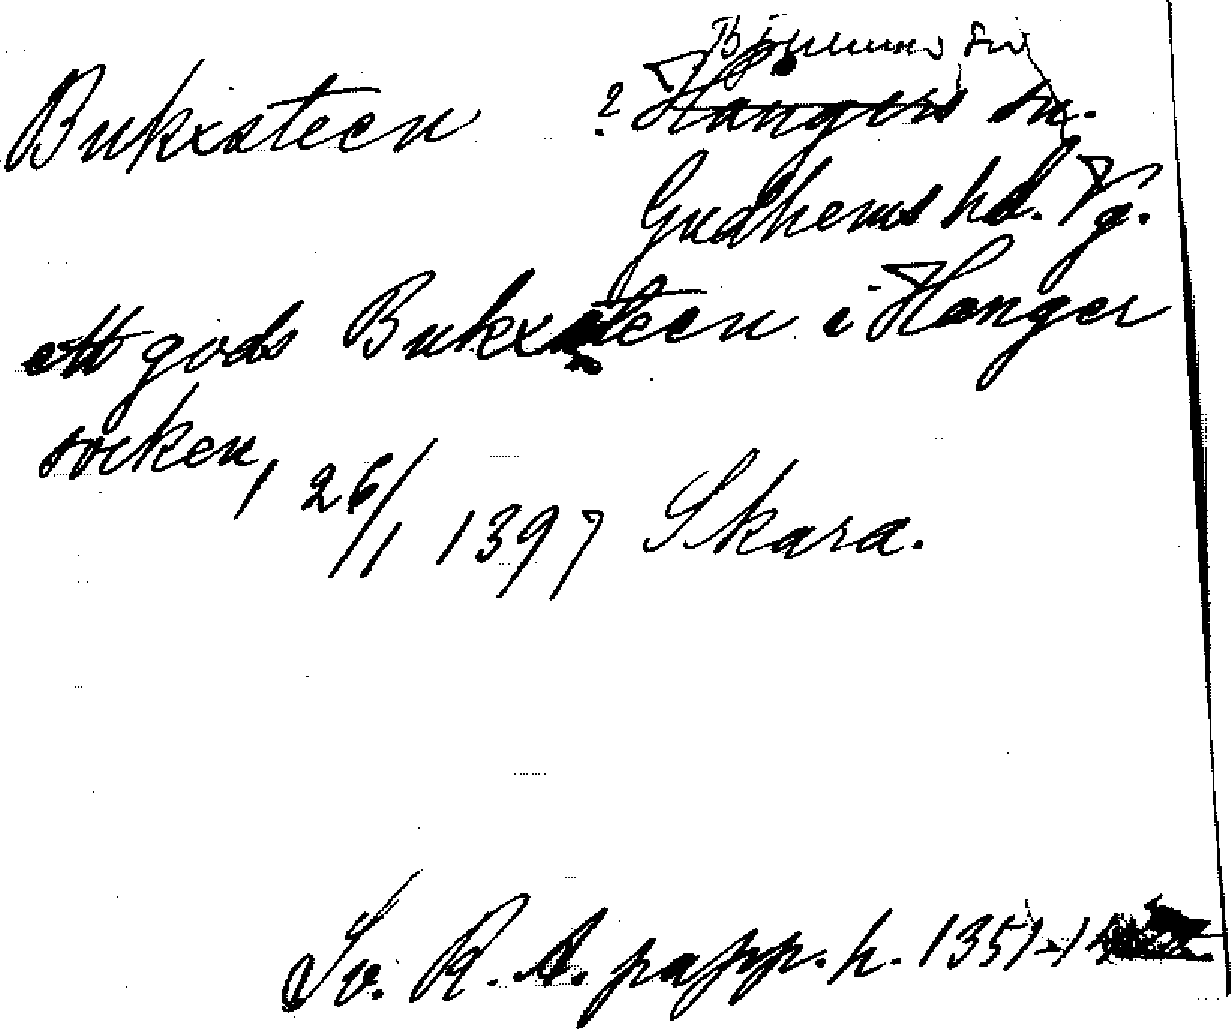 Bjurums sn
Bukxsteen ? Hångers sn.
Gudhems hd. Vg.
ett gods Bukxsteen i Hanger
socken, 26/1 1397 Skara.
Sv. R. A. papp. h. 1351-